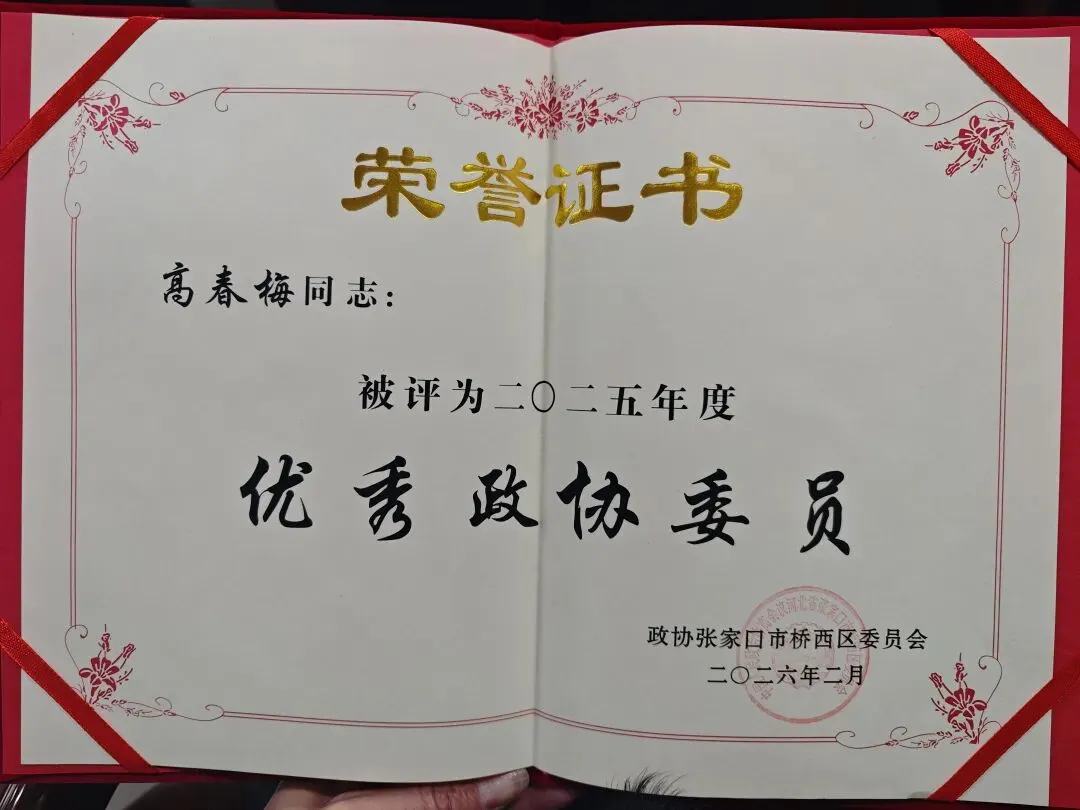 荣誉证书
高春梅同志：
被评为二〇二五年度
优秀政协委员
政协张家口市桥西区委员会
二〇二六年二月